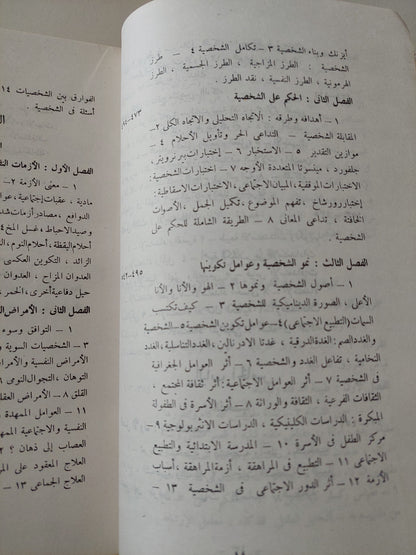 أيزنك وبناء الشخصية ٣ – تكامل الشخصية ٤ – طرز
الشخصية : الطرز المزاجية ، الطرز الجسمية ، الطرز
الهرمونية ، الطرز النفسية ، نقد الطرز .
الفصل الثانى : الحكم على الشخصية
١ – أهدافه وطرقه : الاتجاه التحليلى والاتجاه الكلى ٢ –
المقابلة الشخصية – التداعى الحر وتأويل الأحلام ٤ –
موازين التقدير ٥ – الاستخبار ٦ – إختبارات برنرويتر،
جلفورد ، مينسوتا المتعددة الأوجه ٧ – إختبارات الشخصية:
الاختبارات الموقفية ، الميان الاجتماعى ، الاختبارات الاسقاطية:
إختبار رورشاخ ، تفهم الموضوع ، تكميل الجمل ، الأصوات
الخافتة ، تداعى المعانى ٨ – الطريقة الشاملة للحكم على
الشخصية .
الفصل الثالث : نمو الشخصية وعوامل تكوينها ٤٩٥–
١ – أصول الشخصية ونموها ٢ – الهو والأنا والأنا
الأعلى ، الصورة الديناميكية للشخصية ٣ – كيف تكتسب
السمات (التطبيع الاجتماعى) ٤ – عوامل تكوين الشخصية ٥ – الشخصية
والغدد الصم : الغدة الدرقية ، غدتا الادرنالين ، الغدد التناسلية ، الغدد
النخامية ، تفاعل الغدد والشخصية ٦ – أثر العوامل الجغرافية
فى الشخصية ٧ – أثر العوامل الاجتماعية: أثر ثقافة المجتمع ،
الثقافات الفرعية ، الثقافة والوراثة ٨ – أثر الأسرة فى الطفولة
المبكرة : الدراسات الكلينيكية ، الدراسات الانثربولوجية ٩ –
مركز الطفل فى الأسرة ١٠ – المدرسة الابتدائية والتطبيع
الاجتماعى ١١ – التطبيع فى المراهقة ، أزمة المراهقة ، أسباب
الأزمة ١٢ – أثر الدور الاجتماعى فى الشخصية ١٣ –
الفوارق بين الشخصيات ١٤
أسئلة فى الشخصية .
الفصل الأول : الأزمات
١ – معنى الأزمة ٢ –
مادية ، عقبات إجتماعية ، عوا
الدوافع ، مصادر أزمات شد
وصيد الاحباط ، غسل المخ ٤
أحلام اليقظة ، أحلام النوم ،
الزائد ، التكوين العكسى
العدوان المزاح ، العدوان
حيل دفاعية أخرى ، الخمر ،
الفصل الثانى : الأمراض
١ – التوافق وسوء
٣ – الشخصيات السوية و
الأمراض النفسية والأمراض
التوهان ، التجوال النومى
القلق ٨ – الأمراض العقل
١١ – العوامل الممهدة
النفسية والاجتماعية الممهد
العصاب إلى ذهان ؟ ٢
العلاج المعقود على
العلاج الجماعى ١٣ –